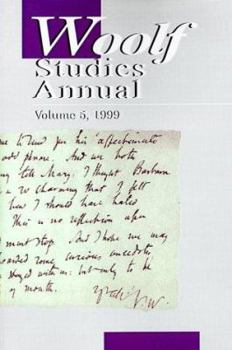 Woolf
Studies
Annual
Volume 5, 1999
to send you his affectionate
phrase. And we both
tell Mary: I thought Barbara
so charming that I felt
how I should have hated
This is no reflection upon
must stop. And I hope we may
some curious anecdotes
stayed with us: but only to be
of month.